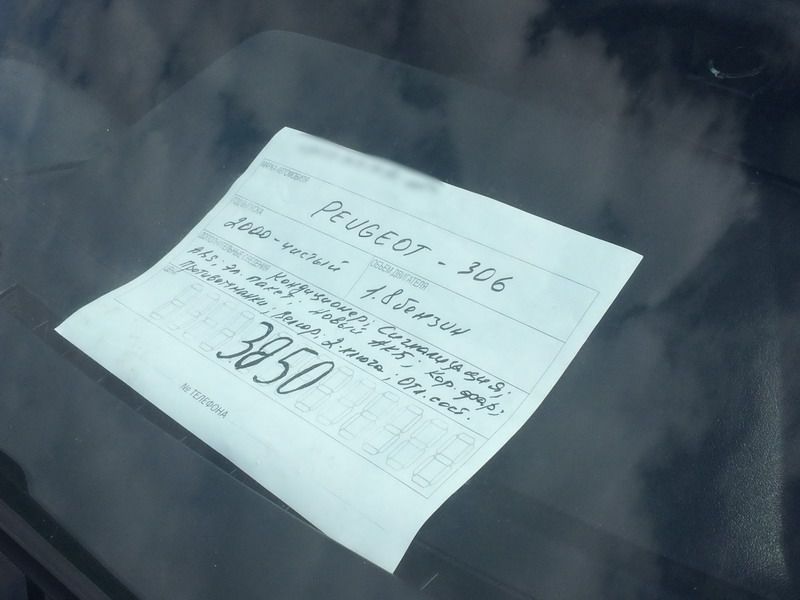 МАРКА АВТОМОБИЛЯ
PEUGEOT - 306
ГОД ВЫПУСКА
2000 - чистый
ОБЪЕМ ДВИГАТЕЛЯ
1.8 бензин
ДОПОЛНИТЕЛЬНЫЕ СВЕДЕНИЯ
Кондиционер, Сигнализация;
ABS. Эл. пакет. Новый АКБ, Кор. фар;
Противотуманки, Велюр, 2 ключа, Отл. сост.
ЦЕНА
3850
№ ТЕЛЕФОНА